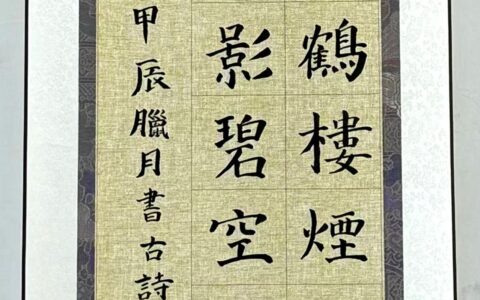 鶴樓煙
影碧空
甲辰臘月書古詩